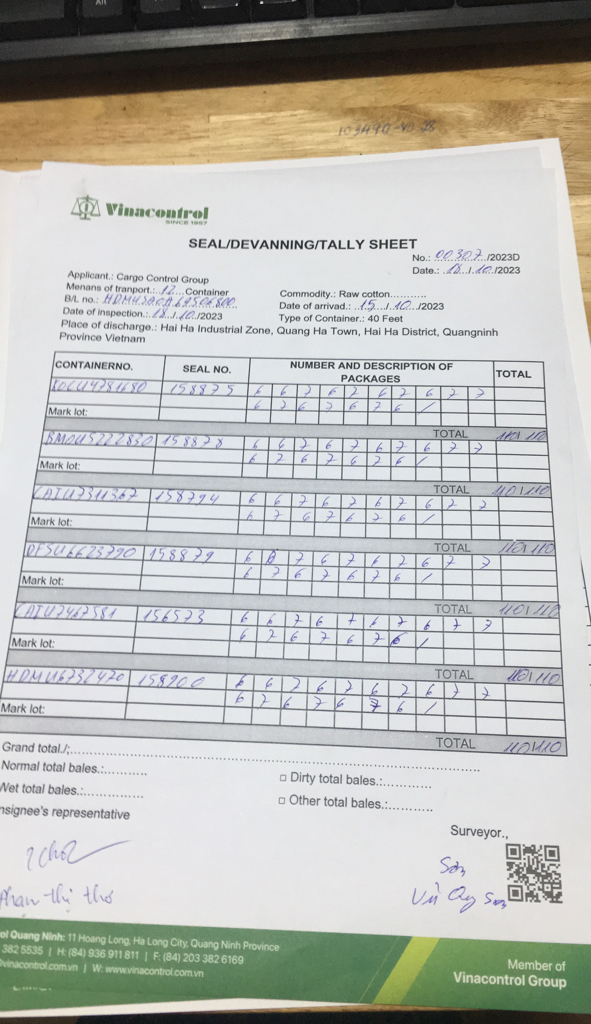 Alt
103490-40 28
Vinacontrol
SINCE 1957
SEAL/DEVANNING/TALLY SHEET
No.: 00307/2023D
Date.: 18/10/2023
Applicant.: Cargo Control Group
Menans of tranport.: 12 Container
Commodity.: Raw cotton..........
B/L no.:
Date of arrivad.: 15/10/2023
Date of inspection.: 18/10/2023
Type of Container.: 40 Feet
Place of discharge.: Hai Ha Industrial Zone, Quang Ha Town, Hai Ha District, Quangninh
Province Vietnam
CONTAINERNO. SEAL NO. NUMBER AND DESCRIPTION OF PACKAGES TOTAL
158875 6 6 7 6 7 6 7 6 7 7
Mark lot: 6 7 6 7 6 7 6 /
TOTAL 110/110
BMOU5222830 158878 6 6 7 6 7 6 7 6 7 7
Mark lot: 6 7 6 7 6 7 6 /
TOTAL 110/110
CAIU7311367 158794 6 6 7 6 7 6 7 6 7 7
Mark lot: 6 7 6 7 6 7 6 /
TOTAL 110/110
DFSU6623790 158879 6 7 6 7 6 7 6 7 7
Mark lot: 6 7 6 7 6 7 6 /
TOTAL 110/110
CAIU7467581 156573 6 6 7 6 7 6 7 6 7 7
Mark lot: 6 7 6 7 6 7 6 /
TOTAL 110/110
HDMU6732420 158900 6 6 7 6 7 6 7 6 7 7
Mark lot: 6 7 6 7 6 7 6 /
TOTAL 110/110
Grand total./:
Normal total bales.:...........
□ Dirty total bales.:...........
Wet total bales.:...........
□ Other total bales.:...........
nsignee's representative
Surveyor.,
Phan thị thơ
Sơn
Vũ Quý Sơn
ol Quang Ninh: 11 Hoang Long, Ha Long City, Quang Ninh Province
382 5535 | H: (84) 936 911 811 | F: (84) 203 382 6169
vinacontrol.com.vn | W: www.vinacontrol.com.vn
Member of
Vinacontrol Group